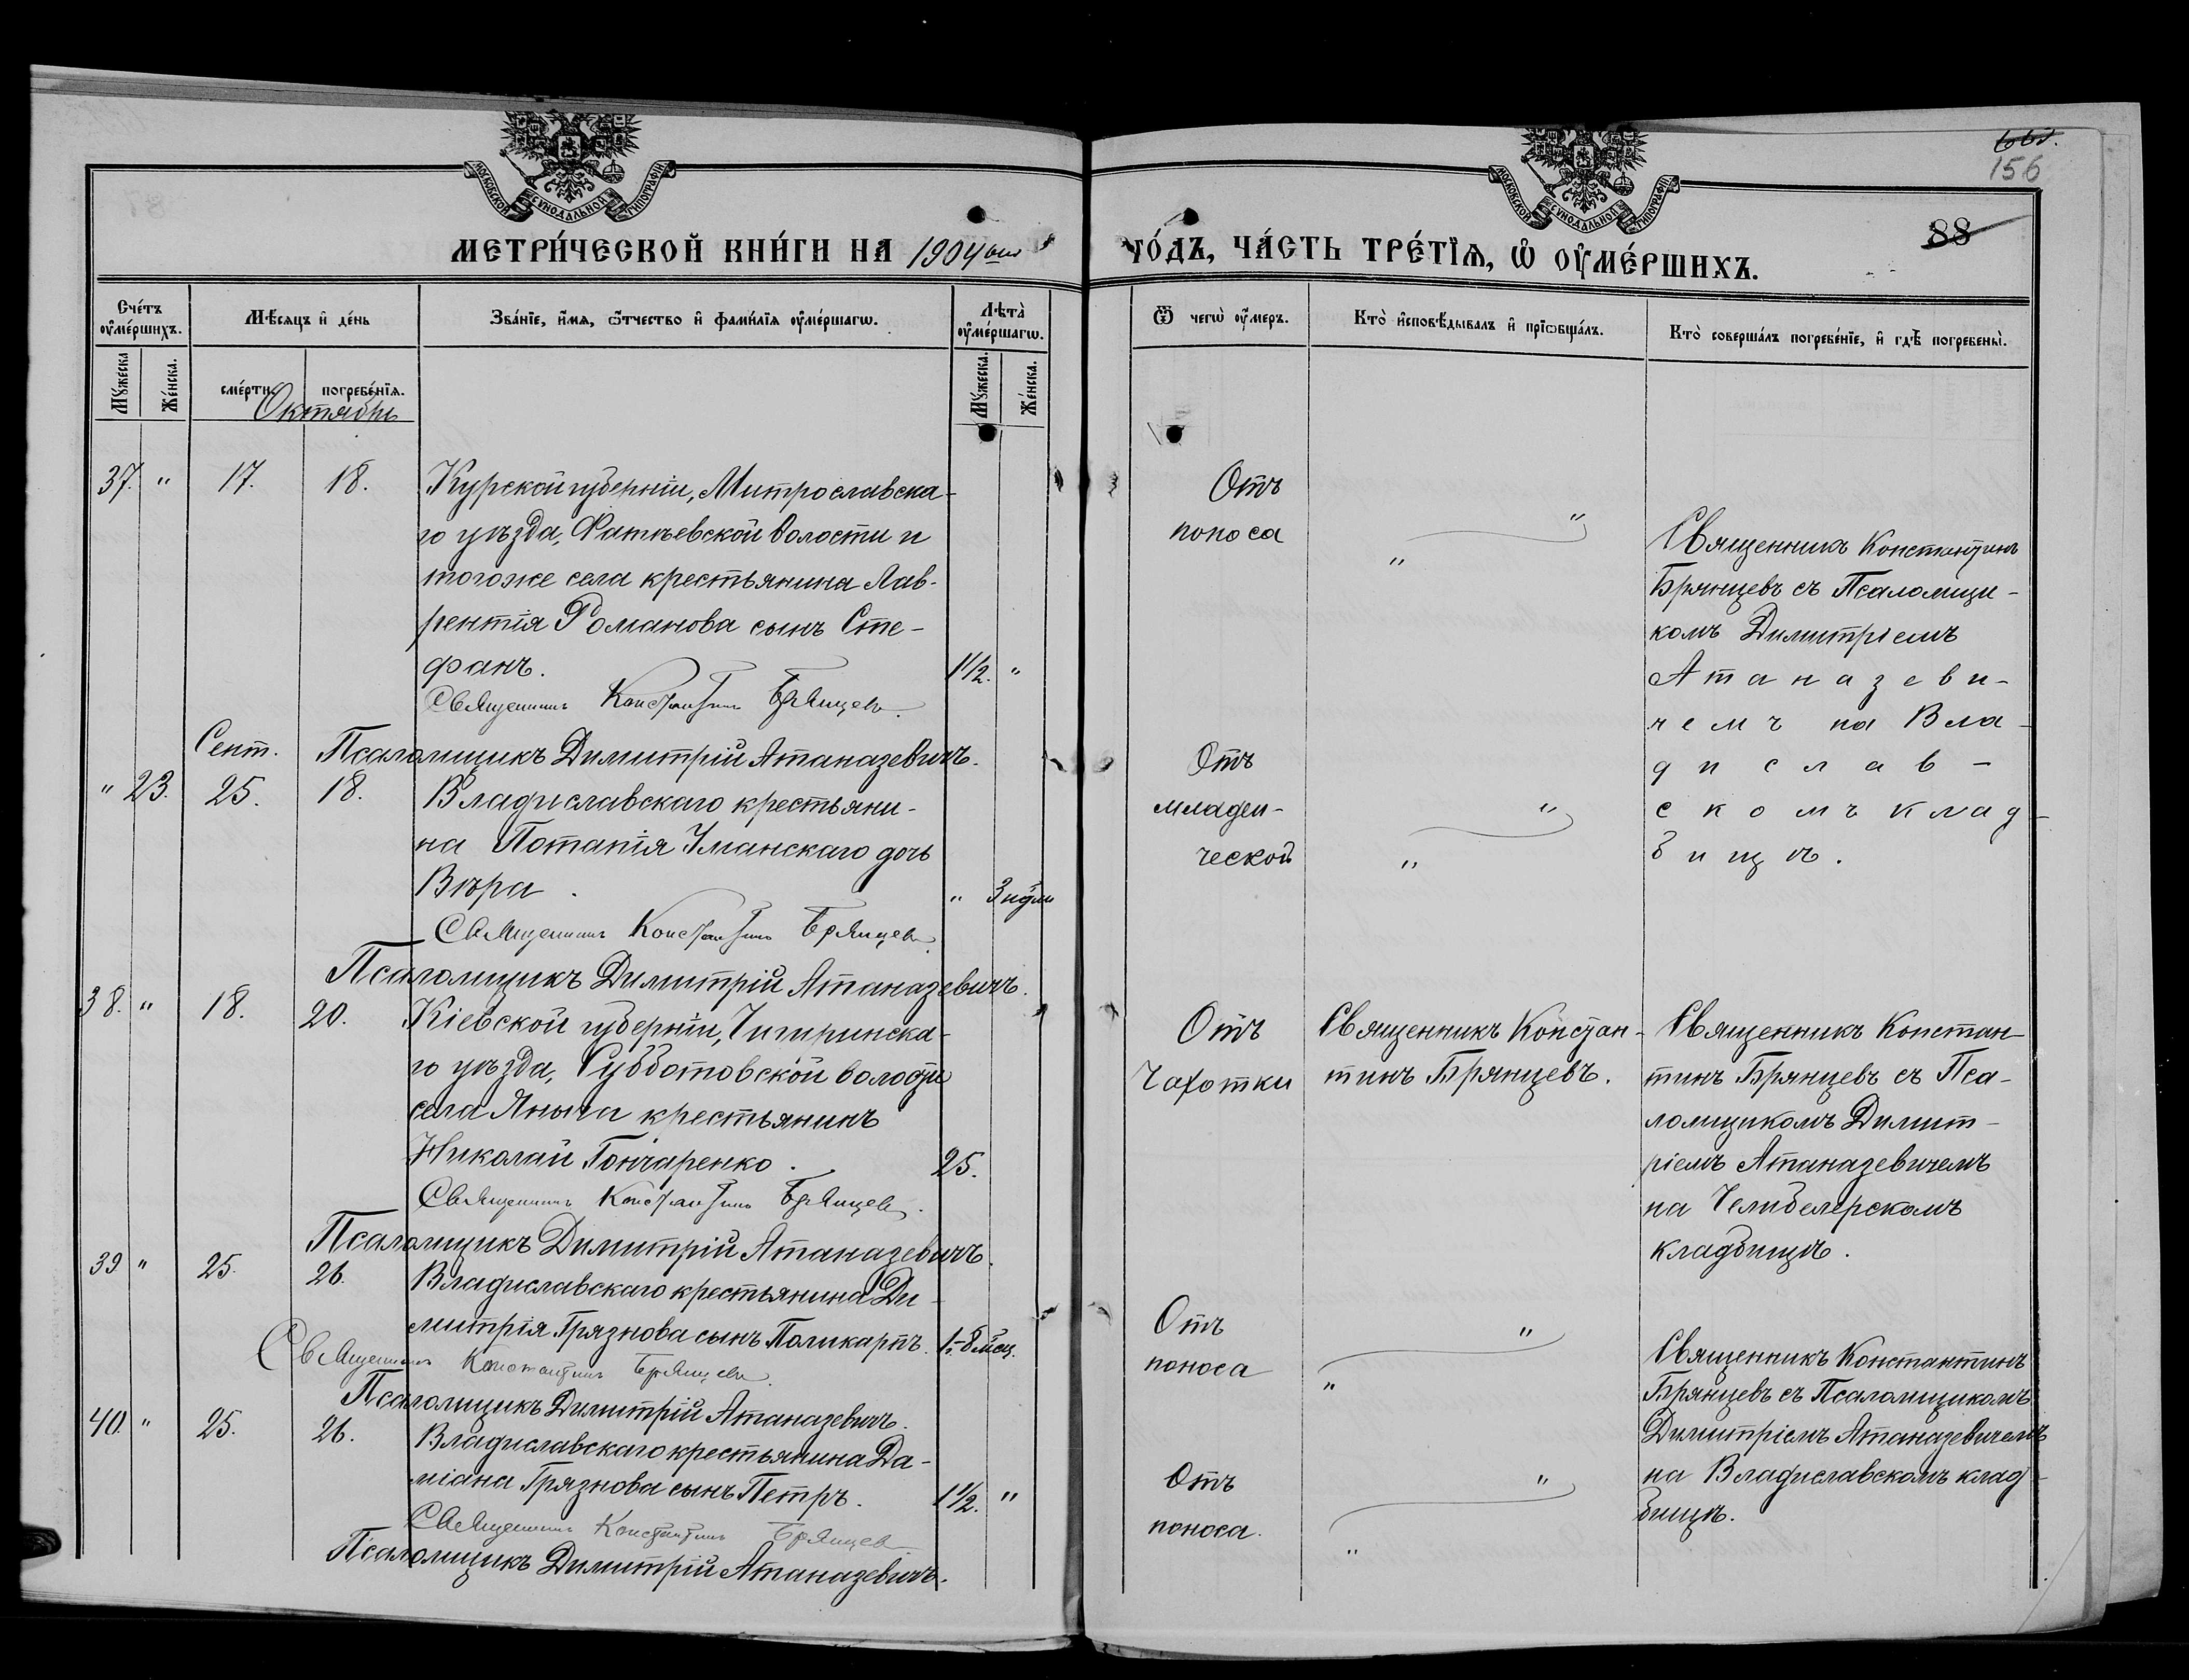 МОСКОВСКОЙ СѴНОДАЛЬНОЙ ТИПОГРАФІИ
МОСКОВСКОЙ СѴНОДАЛЬНОЙ ТИПОГРАФІИ
156
88
МЕТРИ́ЧЕСКОЙ КНИ́ГИ НА 1904 ый
ГО́ДЪ, ЧА́СТЬ ТРЕ́ТЇѦ, Ѡ҆ ОУ҆МЕ́РШИХЪ.
Сче́тъ оу҆ме́ршихъ.
Мѣ́сяцъ и҆ де́нь
Зва́нїе, и҆́мя, ѻ҆́тчество и҆ фами́лїя оу҆ме́ршагѡ.
Лѣта̀ оу҆ме́ршагѡ.
Ѿ чегѡ̀ оу҆́меръ.
Кто̀ и҆сповѣ́дывалъ и҆ прїѡбща́лъ.
Кто̀ соверша́лъ погребе́нїе, и҆ гдѣ̀ погребены̀.
Мꙋ́жеска
Же́нска.
сме́рти.
погребе́нїя.
Мꙋ́жеска.
Же́нска.
Октябрь
37. " 17. 18.
Курской губерніи, Митрославска-
го уѣзда, Фатѣевской волости и
тогоже села крестьянина Лав-
рентія Романова сынъ Сте-
фанъ. 1½. "
Священникъ Константинъ Брянцевъ.
Псаломщикъ Димитрій Атаназевичъ.
Отъ
поноса
" "
Священникъ Константинъ
Брянцевъ съ Псаломщи-
комъ Димитріемъ
Атаназеви-
чемъ на Вла-
дислав-
скомъ клад-
бищѣ.
Сент.
" 23. 25. 18.
Владиславскаго крестьяни-
на Потапія Уманскаго дочь
Вѣра. " 3 нѣдѣли
Священникъ Константинъ Брянцевъ.
Псаломщикъ Димитрій Атаназевичъ.
Отъ
младен-
ческой
" "
38. " 18. 20.
Кіевской губерніи, Чигиринска-
го уѣзда, Субботовской волости
села Яныча крестьянинъ
Николай Гончаренко. 25.
Священникъ Константинъ Брянцевъ.
Псаломщикъ Димитрій Атаназевичъ.
Отъ
Чахотки
Священникъ Констан-
тинъ Брянцевъ.
Священникъ Констан-
тинъ Брянцевъ съ Пса-
ломщикомъ Димит-
ріемъ Атаназевичемъ
на Челибелерскомъ
кладбищѣ.
39 " 25. 26.
Владиславскаго крестьянина Ди-
митрія Грязнова сынъ Поликарпъ. 1.-8 мсц.
Священникъ Константинъ Брянцевъ.
Псаломщикъ Димитрій Атаназевичъ.
Отъ
поноса
" "
Священникъ Константинъ
Брянцевъ съ Псаломщикомъ
Димитріемъ Атаназевичемъ
на Владиславскомъ клад-
бищѣ.
40. " 25. 26.
Владиславскаго крестьянина Да-
міана Грязнова сынъ Петръ. 1½. "
Священникъ Константинъ Брянцевъ.
Псаломщикъ Димитрій Атаназевичъ.
Отъ
поноса.
" "